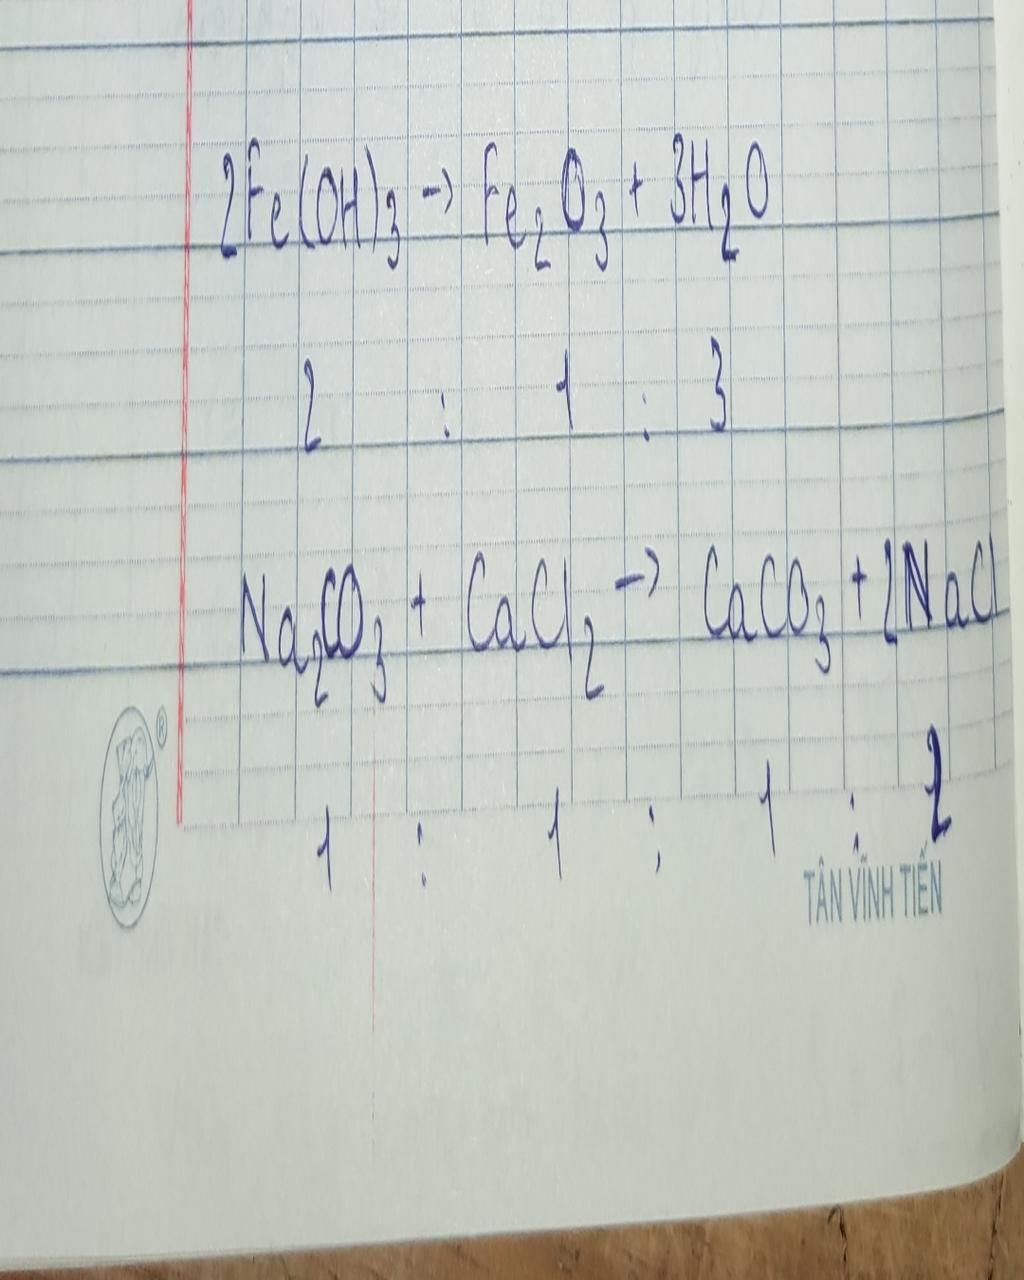 2Fe(OH)₃ → Fe₂O₃ + 3H₂O
2 : 1 : 3
Na₂CO₃ + CaCl₂ → CaCO₃ + 2NaCl
1 : 1 : 1 : 2
®
TÂN VĨNH TIẾN